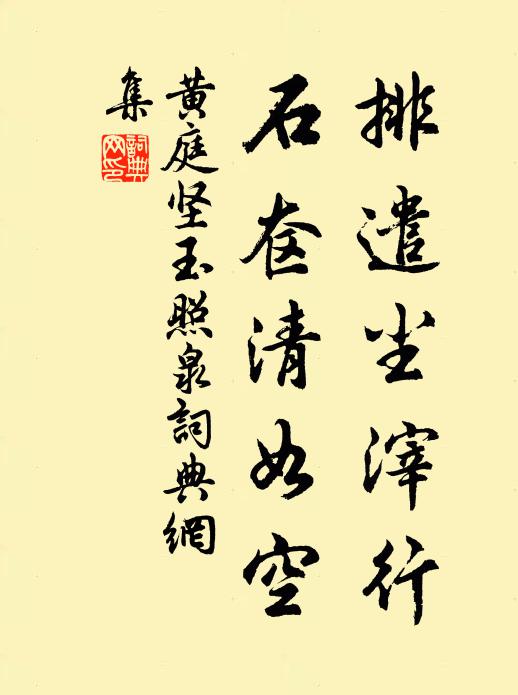 排遣尘滓行
石奁清如空
黄庭坚玉照泉詞典網
集
詞典
网印